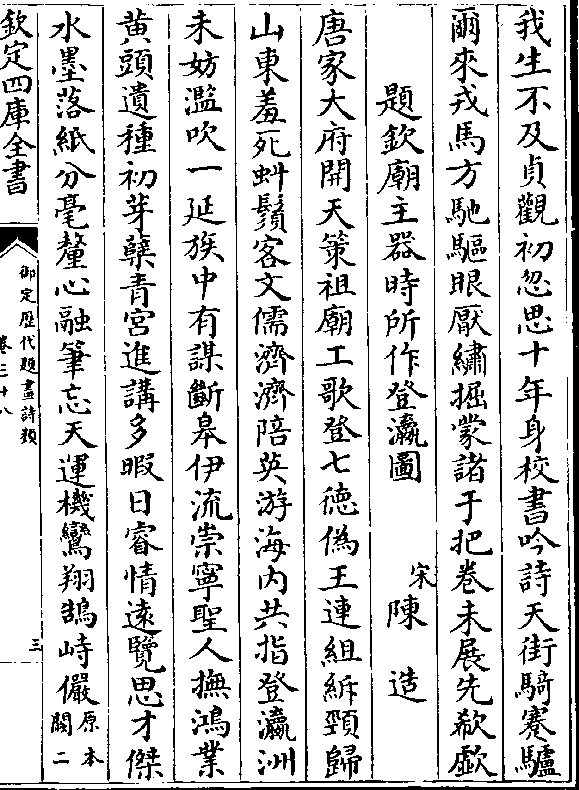 我生不及貞觀初忽思十年身校書吟詩天街騎蹇驢
爾來戎馬方馳驅眼厭繡掘蒙諸于把卷未展先欷歔
題欽廟主器時所作登瀛圖 宋陳造
唐家大府開天策祖廟工歌登七德偽王連組紲頸歸
山東羞死虯鬚客文儒濟濟陪英游海内共指登瀛洲
未妨濫吹一延族中有謀斷皋伊流崇寧聖人撫鴻業
黄頭遺種初芽孽青宫進講多暇日睿情逺覽思才傑
水墨落紙分毫釐心融筆忘天運機鸞翔鵠峙儼原本闕二
欽定四庫全書
御定歴代題畫詩類
卷三十八
三